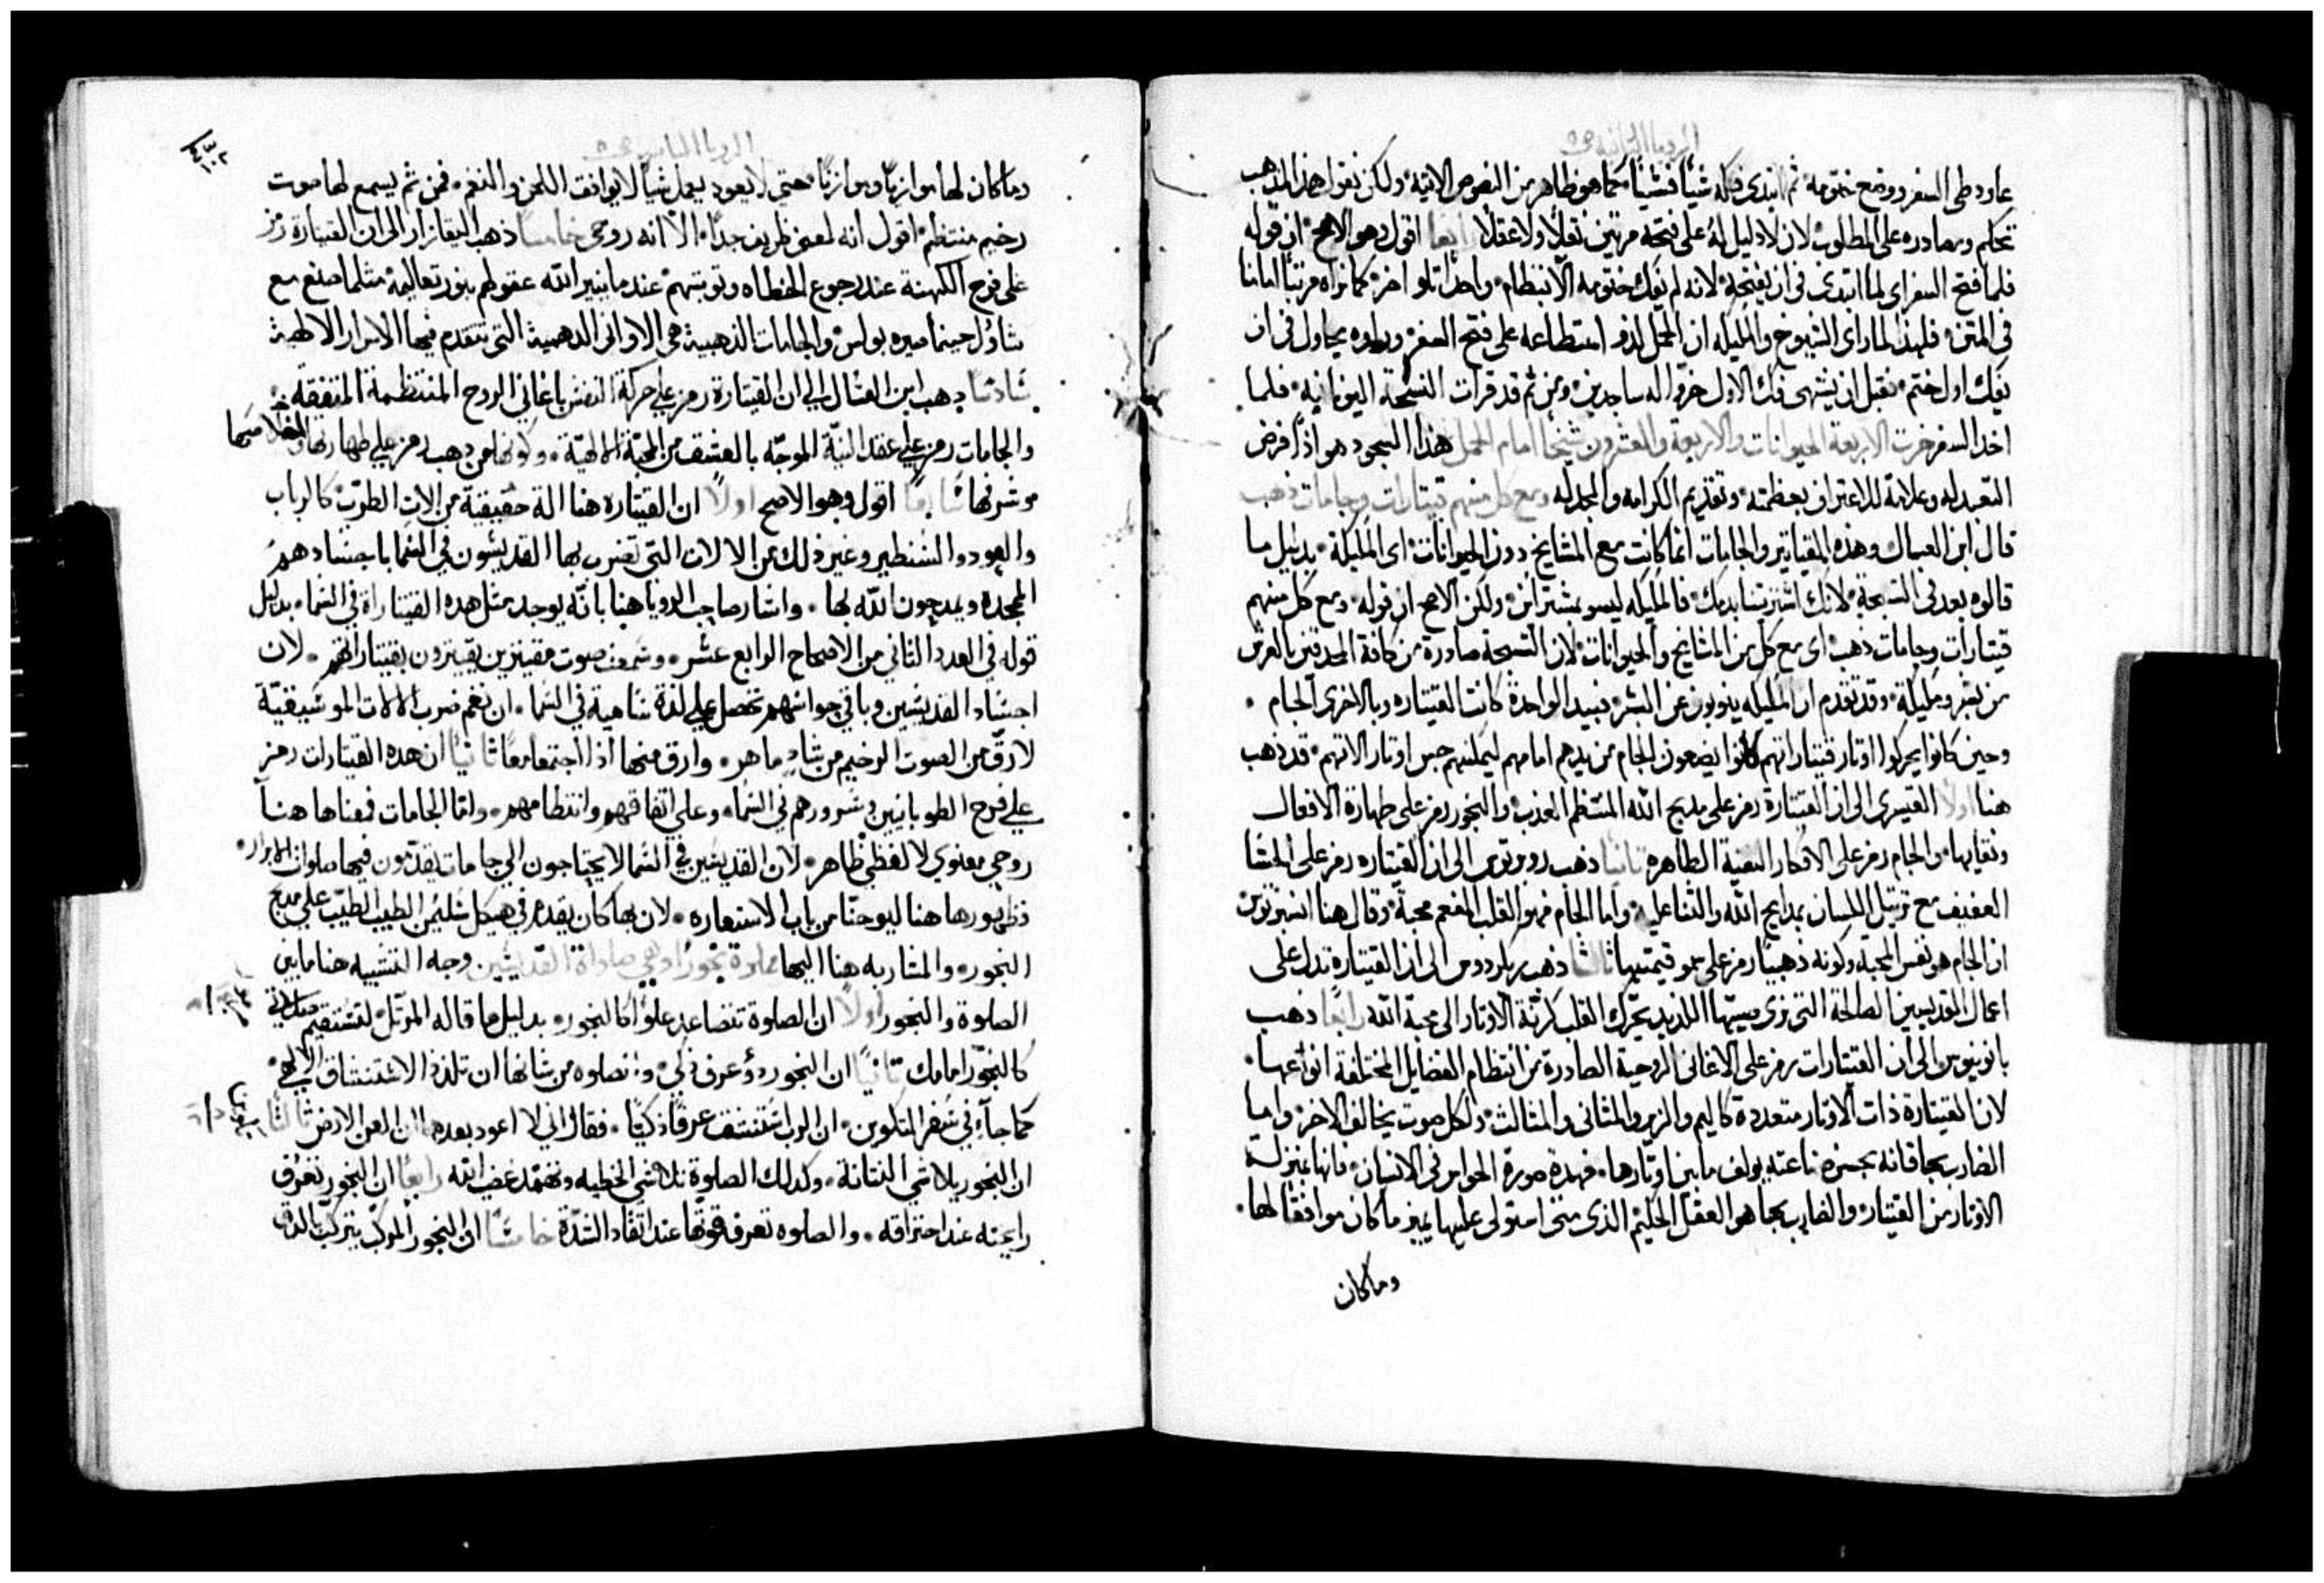 الرويا الثانيه
عاود طى السفر ووضع ختومه ثم ابتدى فكه شيأ فشيأ كما هو ظاهر من النصوص الاتية ولكن نقول هذا المذهب
تحكم ومصادره على المطلوب لان لا دليل له على فتحه مرتين نقلاً ولا عقلاً رابعا اقول وهو الاصح ان قوله
فلما فتح السفر اى لما ابتدى فى ان يفتحه لانه لم يفك ختومه الا بنظام واحداً تلو اخر كما نراه مرتباً امامنا
فى المتن فلهذا لما راى الشيوخ والمليكه ان الحمل لذو استطاعه على فتح السفر وراوه يحاول فى ان
يفك اول ختم فقبل ان ينتهى فك الاول خروا له ساجدين ومن ثم قد قرات النسخة اليونانيه فلما
اخد السفر خرت الاربعة الحيوانات والاربعة والعشرون شيخا امام الحمل هذا السجود هو اذاً فرض
التعبد له وعلامة للاعتراف بعظمته وتقديم الكرامه والمجد له ومع كل منهم قيتارات وجامات ذهب
قال ابن العسال وهذه القياتير والجامات انما كانت مع المشايخ دون الحيوانات اى المليكة بدليل ما
قالوه بعد فى التسبحة لانك اشتريتنا بدمك فالمليكه ليسو بمشترائن ولكن الاصح ان قوله ومع كل منهم
قيتارات وجامات دهب اى مع كل من المشايخ والحيوانات لان التسبحة صادرة من كافة المحدقين بالعرش
من بشر ومليكة وقد تقدم ان المليكه ينوبون عن البشر فبيد الواحدة كانت القيتاره وبالاخرى الجام
وحين كانوا يحركوا اوتار قيتاراتهم كانوا يضعون الجام من يدهم امامهم ليمكنهم جس اوتار الاتهم قد ذهب
هنا اولا القيسرى الى ان القيتارة رمز على مديح الله المنتظم العذب والبخور رمز على طهارة الافعال
ونقايها والجام رمز على الافكار النقية الطاهره ثانيا ذهب روبرتوس الى ان القيتاره رمز على الحشا
العفيف مع ترتيل اللسان بمدايح الله والثنا عليه واما الجام فهو القلب المفعم محبة وقال هنا انسبرتوس
ان الجام هو نفس المحبة وكونه ذهبياً رمز على سمو قيمتها ثالثا ذهب بريكردوس الى ان القيتارة تدل على
اعمال القديسين الصالحة التى نرى صيتها اللذيد يحرك القلب كرنة الاوتار الى محبة الله رابعا ذهب
بانونيوس الى ان القيتارات رمز على الاغانى الروحية الصادرة من انتظام الفضايل المختلفة انواعها
لان القيتارة ذات الاوتار متعددة كاليم والزير والمثانى والمثالث ولكل صوت يخالف الاخر واما
الضارب بها فانه بحسن صناعته يولف ما بين اوتارها فهذه صورة الحواس فى الانسان فانها بمنزلة
الاوتار من القيتار والضارب بها هو العقل الحليم الذى متى استولى عليها يميز ما كان موافقاً لها
وما كان
الرويا الثانيه
وما كان لها موازياً وموازناً حتى لا يعود يعمل شيأ لا يوافق اللحن والنغم فمن ثم يسمع لها صوت
رخيم منتظم اقول انه لمعنى ظريف جداً الا انه روحى خامسا ذهب اليقازار الى ان القيتارة رمز
على فرح الكهنة عند رجوع الخطاه وتوبتهم عندما ينير الله عقولهم بنور تعاليمه مثلما صنع مع
شاول حينما صيره بولس والجامات الذهبية هى الاوانى الدهبية التى تتقدم فيها الاسرار الالهية
سادسا دهب ابن العسال الى ان القيتارة رمز على حركة النفس باغاني الروح المنتظمة المتفقه
والجامات رمز على عقد النية الموجه بالعشق من المحبة الالهية وكونها من دهب رمز على طهارتها وخلاصها
وشرفها سابعا اقول وهو الاصح اولا ان القيتاره هنا الة حقيقية من الات الطرب كالرباب
والعود والسنطير وغير ذلك من الالات التي تضرب بها القديسون في السما باجسادهم
الممجدة ويمدحون الله بها واشار صاحب الرويا هنا بانه يوجد مثل هده القيتاراة في السما بدليل
قوله في العدد الثاني من الاصحاح الرابع عشر وسمعت صوت مقيترين يقيترون بقيتاراتهم لان
اجساد القديسين وباقي حواسهم تحصل على لذة سامية في السما ان نغم ضرب الالات الموسيقية
لارق من الصوت الرخيم من شاد ماهر وارق منها اذا اجتمعا معا ثانيا ان هده القيتارات رمز
على فرح الطوبانيين وسرورهم في السما وعلى اتفاقهم وانتظامهم واما الجامات فمعناها هنا
روحي معنوي لا لفظي ظاهر لان القديسين في السما لا يحتاجون الى جامات يقدمون فيها صلوات الابرار
فظهورها هنا ليوحنا من باب الاستعاره لان بها كان يقدم في هيكل سليمن الطيب الطيب على مدبح
البخور والمشار به هنا اليها مملوة بخورا وهي صلواة القديسين وجه التشبيه هنا ما بين
الصلوة والبخور اولا ان الصلوة تتصاعد علوا كالبخور بدليل ما قاله المرتل لتستقيم صلاتي
كالبخور امامك ثانيا ان البخور دو عرف ذكي والصلوه من شانها ان تلذذ الاستنشاق الالهي
كما جاء في سفر التكوين ان الرب استنشق عرفا ذكيا فقال اني لا اعود بعدها ان العن الارض ثالثا
ان البخور يلاشي النتانة وكدلك الصلوة تلاشي الخطيه وتخمد غضب الله رابعا ان البخور تعرف
رايحته عند احتراقه والصلوه تعرف قوتها عند اتقاد الشدة خامسا ان البخور المركب يتركب الدق